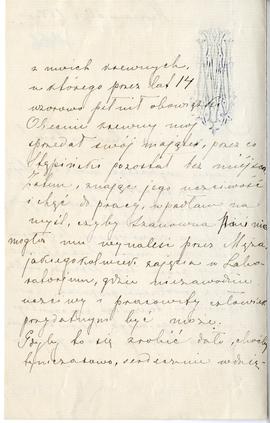 z moich krewnych,
u którego przez lat 14
wzorowo pełnił obowiązki
Obecnie krewny mój
sprzedał swój majątek, przez co
Stępiński pozostał bez miejsca
Zatem, znając jego uczciwość
i chęć do pracy, wpadłam na
myśl, czyby szanowna Pani nie
mogła mu wynaleść przez Męża
jakiegokolwiek zajęcia w Labo-
ratorjum, gdzie niezawodnie
uczciwy i pracowity człowiek
przydatnym być może.
Gdyby to się zrobić dało, choćby
tymczasowo, serdecznie wdzię-